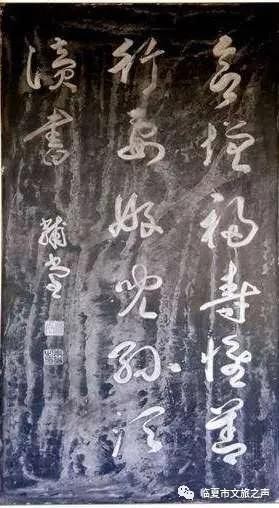 增福壽惟善
行要好兒孫須
讀書
堂
临夏市文旅之声